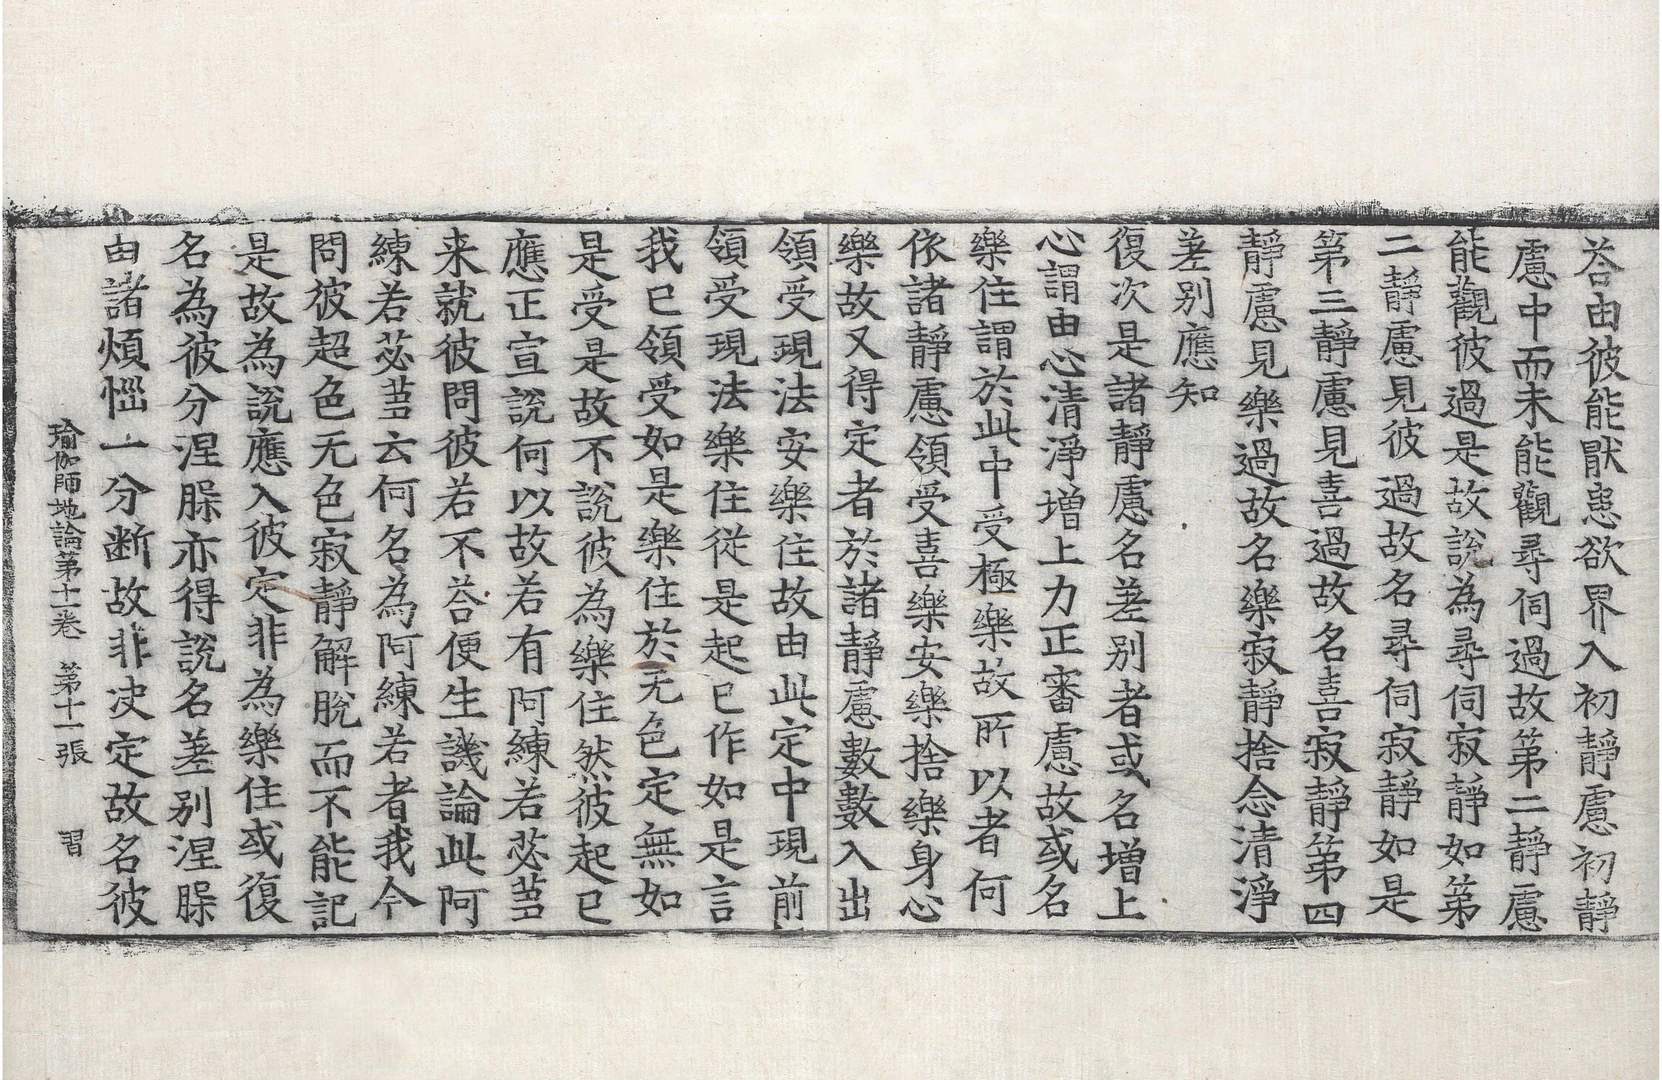 荅由彼能猒患欲界入初靜慮初靜
慮中而未能觀尋伺過故第二靜慮
能觀彼過是故說為尋伺寂靜如第
二靜慮見彼過故名尋伺寂靜如是
第三靜慮見喜過故名喜寂靜第四
靜慮見樂過故名樂寂靜捨念清淨
差別應知
復次是諸靜慮名差別者或名增上
心謂由心清淨增上力正審慮故或名
樂住謂於此中受極樂故所以者何
依諸靜慮領受喜樂安樂捨樂身心
樂故又得定者於諸靜慮數數入出
領受現法安樂住故由此定中現前
領受現法樂住從是起已作如是言
我已領受如是樂住於无色定無如
是受是故不說彼為樂住然彼起已
應正宣說何以故若有阿練若苾蒭
来就彼問彼若不荅便生譏論此阿
練若苾蒭云何名為阿練若者我今
問彼超色无色寂靜解脫而不能記
是故為說應入彼定非為樂住或復
名為彼分涅槃亦得說名差別涅槃
由諸煩惱一分断故非决定故名彼
瑜伽師地論第十一卷 第十一張 習